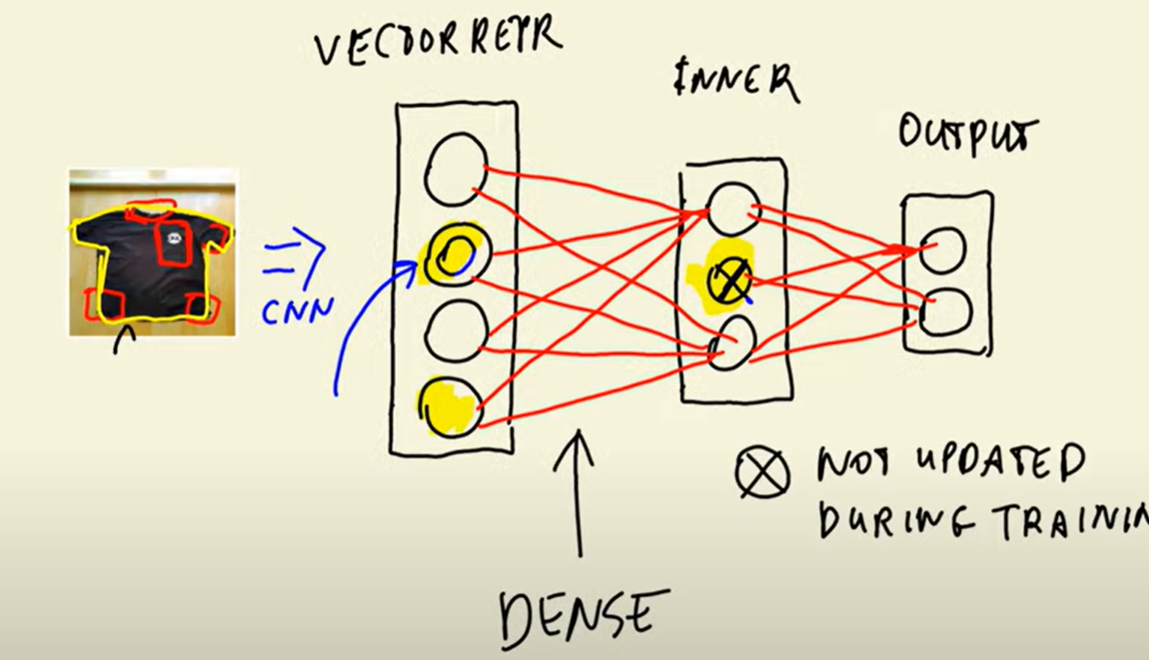 VECTOR REPR
INNER
OUTPUT
CNN
NOT UPDATED
DURING TRAININ
DENSE